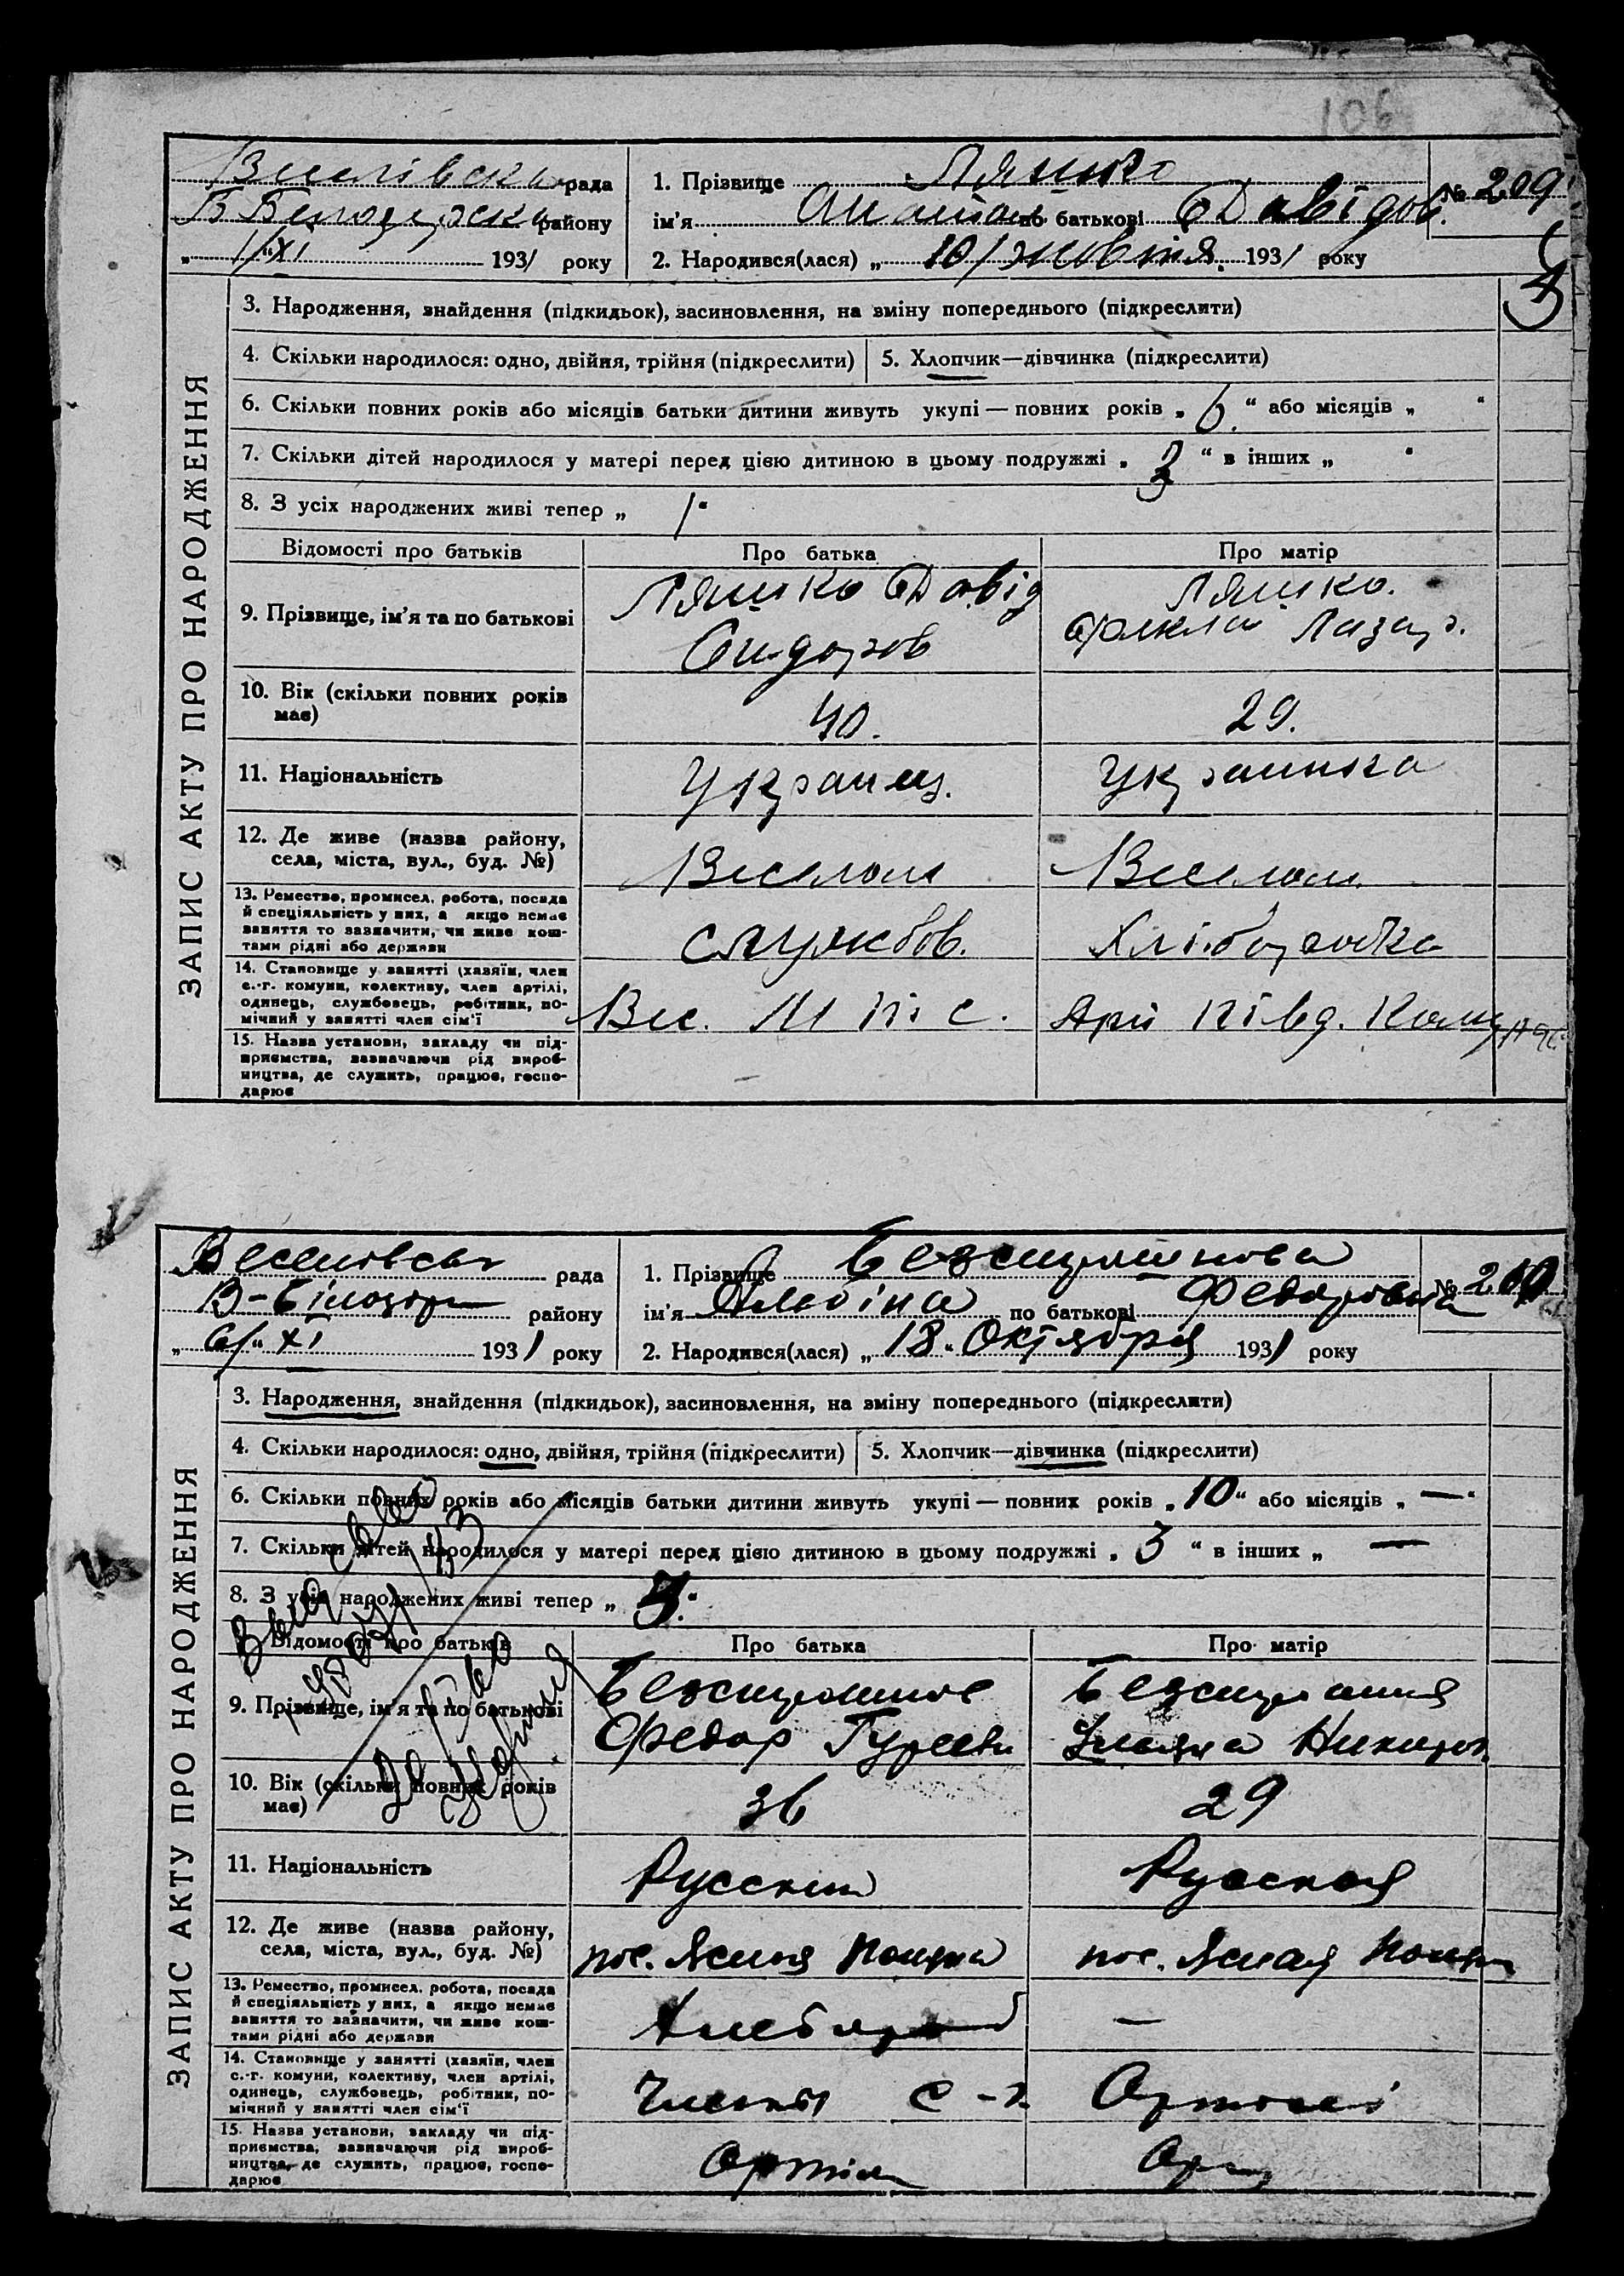 106
рада
району
1/XI 1931 року
1. Прізвище Ляшко
ім'я по батькові Давідов.
№ 209
2. Народився(лася) „ 10/жовтня. 1931 року
ЗАПИС АКТУ ПРО НАРОДЖЕННЯ
3. Народження, знайдення (підкидьок), засиновлення, на зміну попереднього (підкреслити)
4. Скільки народилося: одно, двійня, трійня (підкреслити) 5. Хлопчик—дівчинка (підкреслити)
6. Скільки повних років або місяців батьки дитини живуть укупі — повних років „ 6. “ або місяців „ “
7. Скільки дітей народилося у матері перед цією дитиною в цьому подружжі „ “ в інших „ “
8. З усіх народжених живі тепер „ 1 “
Відомості про батьків Про батька Про матір
9. Прізвище, ім'я та по батькові
Ляшко Давід
Сидоров
Ляшко.
Лазар.
10. Вік (скільки повних років
має)
40. 29.
11. Національність
Українец. Украинка
12. Де живе (назва району,
села, міста, вул., буд. №)
Веселом Веселом.
13. Ремество, промисел, робота, посада
й спеціяльність у них, а якщо немає
заняття то зазначити, чи живе кош-
тами рідні або держави
службов. Хліборобка
14. Становище у занятті (хазяїн, член
с.-г. комуни, колективу, член артілі,
одинець, службовець, робітник, по-
мічний у занятті член сім'ї
Вес. М Т С. Арт Півд.
15. Назва установи, закладу чи під-
приємства, зазначаючи рід вироб-
ництва, де служить, працює, госпо-
дарює
Веселовськ рада
В-Білозір району
6/XI 1931 року
1. Прізвище
ім'я Альбіна по батькові Федоровна
№ 210
2. Народився(лася) „ 18 “ Октября 1931 року
ЗАПИС АКТУ ПРО НАРОДЖЕННЯ
3. Народження, знайдення (підкидьок), засиновлення, на зміну попереднього (підкреслити)
4. Скільки народилося: одно, двійня, трійня (підкреслити) 5. Хлопчик—дівчинка (підкреслити)
6. Скільки повних років або місяців батьки дитини живуть укупі — повних років „ 10 “ або місяців „ — “
7. Скільки дітей народилося у матері перед цією дитиною в цьому подружжі „ 3 “ в інших „ —
8. З усіх народжених живі тепер „ “
Відомості про батьків Про батька Про матір
9. Прізвище, ім'я та по батькові
Федор
Ульяна
10. Вік (скільки повних років
має)
36 29
11. Національність
Русский Русская
12. Де живе (назва району,
села, міста, вул., буд. №)
пос. Ясная Поляна пос. Ясная Поляна
13. Ремество, промисел, робота, посада
й спеціяльність у них, а якщо немає
заняття то зазначити, чи живе кош-
тами рідні або держави
Хлебороб —
14. Становище у занятті (хазяїн, член
с.-г. комуни, колективу, член артілі,
одинець, службовець, робітник, по-
мічний у занятті член сім'ї
Члены с-г. Артели
15. Назва установи, закладу чи під-
приємства, зазначаючи рід вироб-
ництва, де служить, працює, госпо-
дарює
Артіль